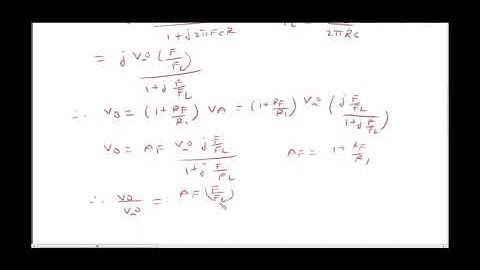 1+j2πFCR 2πRC
= j Vin (F/FL)
1+j F/FL
∴ Vo = (1+RF/R1) VA = (1+RF/R1) Vin (j F/FL / 1+j F/FL)
Vo = AF Vin j F/FL / 1+j F/FL AF = 1+RF/R1
∴ Vo/Vin = AF (F/FL)